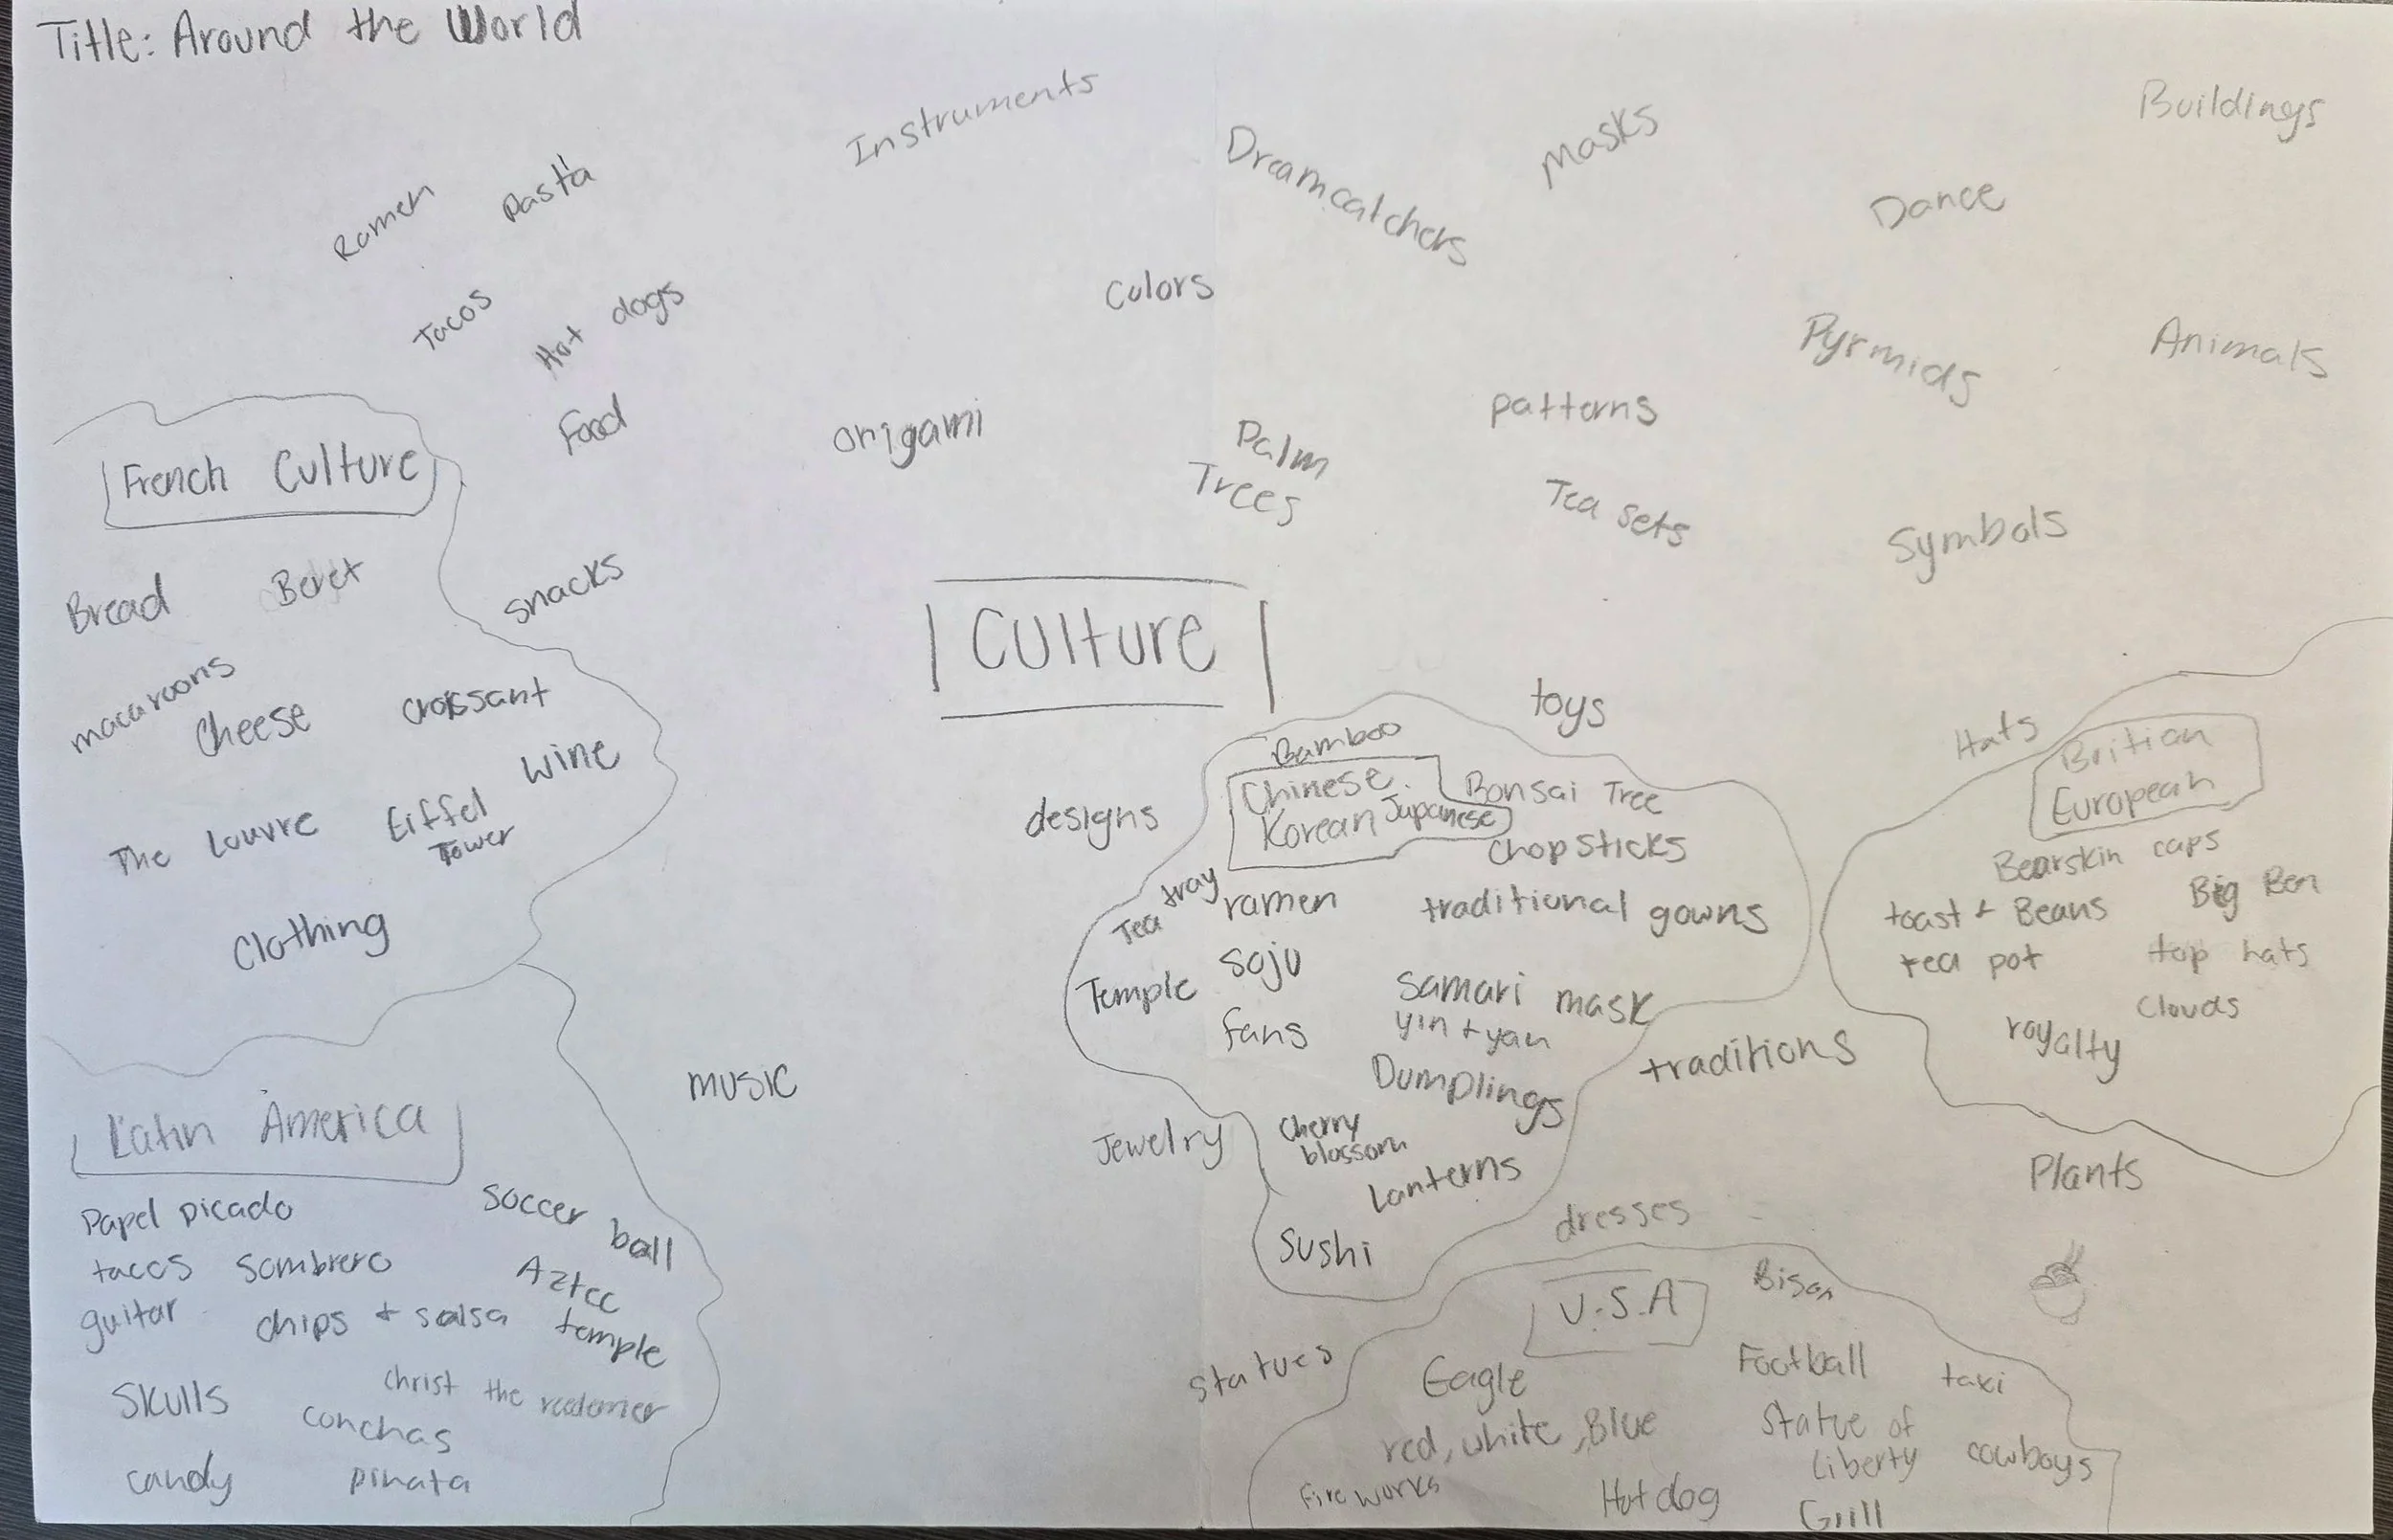 Title: Around the World
Instruments
Dreamcatchers
Masks
Buildings
Ramen
Pasta
Dance
Tacos
Hot dogs
Colors
Pyrmids
Animals
Food
origami
Palm
Trees
patterns
Tea sets
Symbols
French Culture
Bread
Beret
snacks
macaroons
Cheese
croissant
wine
The Louvre
Eiffel
Tower
Clothing
Culture
toys
designs
Bamboo
Chinese
Korean Japanese
Bonsai Tree
chopsticks
Tea tray
ramen
traditional gowns
Temple
soju
samari mask
fans
yin + yan
Dumplings
Cherry
blossom
Lanterns
Sushi
Hats
Britian
European
Bearskin caps
toast + Beans
Big Ben
tea pot
top hats
Clouds
royalty
traditions
music
Jewelry
Plants
dresses
Latin America
Papel picado
soccer ball
tacos
sombrero
Aztec
temple
guitar
chips + salsa
Skulls
christ the
conchas
candy
pinata
statues
U.S.A
Bison
Eagle
Football
taxi
red, white, Blue
Statue of
Liberty
cowboys
fire works
Hot dog
Grill